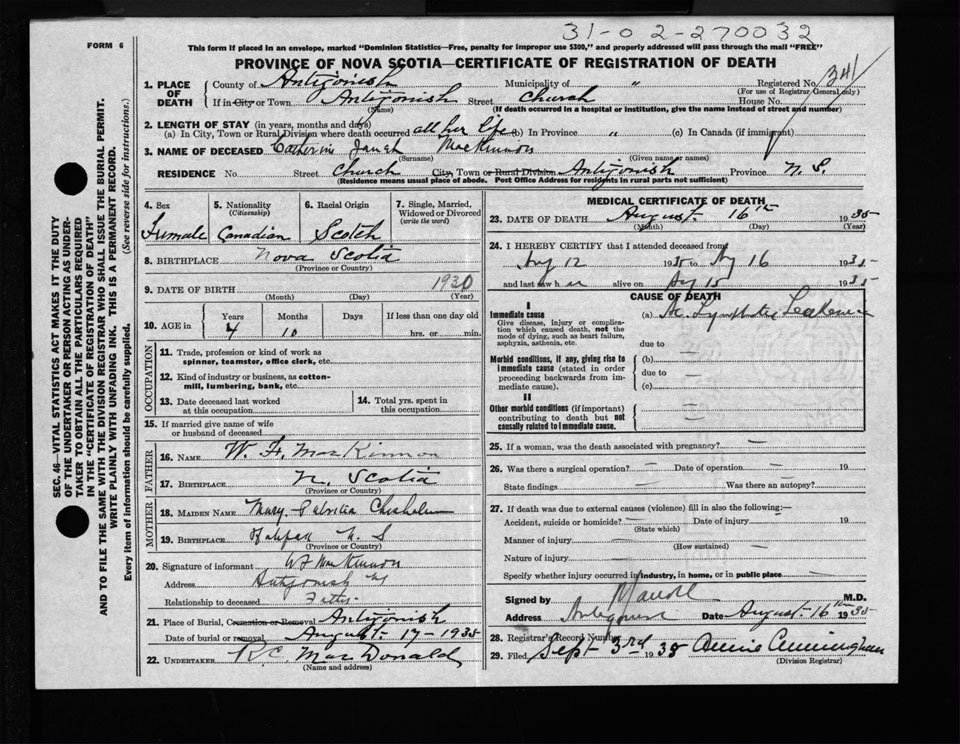 31-02-270032
FORM 6
This form if placed in an envelope, marked "Dominion Statistics—Free, penalty for improper use $300," and properly addressed will pass through the mail "FREE"
PROVINCE OF NOVA SCOTIA—CERTIFICATE OF REGISTRATION OF DEATH
SEC. 46—VITAL STATISTICS ACT MAKES IT THE DUTY
OF THE UNDERTAKER OR PERSON ACTING AS UNDER-
TAKER TO OBTAIN ALL THE PARTICULARS REQUIRED
IN THE "CERTIFICATE OF REGISTRATION OF DEATH"
AND TO FILE THE SAME WITH THE DIVISION REGISTRAR WHO SHALL ISSUE THE BURIAL PERMIT.
WRITE PLAINLY WITH UNFADING INK. THIS IS A PERMANENT RECORD.
Every item of information should be carefully supplied. (See reverse side for instructions.)
1. PLACE OF DEATH County of Antigonish Municipality of " Registered No. 341
(For use of Registrar General only)
If in City or Town Antigonish Street Church House No.
(Name) (If death occurred in a hospital or institution, give the name instead of street and number)
2. LENGTH OF STAY (in years, months and days)
(a) In City, Town or Rural Division where death occurred all her life (b) In Province " (c) In Canada (if immigrant)
3. NAME OF DECEASED Catherine Janet MacKinnon
(Surname) (Given name or names)
RESIDENCE No. Street Church City, Town or Rural Division Antigonish Province N. S.
(Residence means usual place of abode. Post Office Address for residents in rural parts not sufficient)
4. Sex 5. Nationality (Citizenship) 6. Racial Origin 7. Single, Married, Widowed or Divorced (write the word)
Female Canadian Scotch
8. BIRTHPLACE Nova Scotia
(Province or Country)
9. DATE OF BIRTH 1930
(Month) (Day) (Year)
10. AGE in Years Months Days If less than one day old
4 10 hrs. or min.
OCCUPATION
11. Trade, profession or kind of work as
spinner, teamster, office clerk, etc.
12. Kind of industry or business, as cotton-
mill, lumbering, bank, etc.
13. Date deceased last worked at this occupation 14. Total yrs. spent in this occupation
15. If married give name of wife
or husband of deceased
FATHER
16. NAME W. F. MacKinnon
17. BIRTHPLACE N. Scotia
(Province or Country)
MOTHER
18. MAIDEN NAME Mary Patricia Chisholm
19. BIRTHPLACE Halifax N. S
(Province or Country)
20. Signature of informant W F MacKinnon
Address Antigonish NS
Relationship to deceased Father
21. Place of Burial, Cremation or Removal Antigonish
Date of burial or removal August 17 - 1935
22. UNDERTAKER R. C. MacDonald
(Name and address)
MEDICAL CERTIFICATE OF DEATH
23. DATE OF DEATH August 16th 1935
(Month) (Day) (Year)
24. I HEREBY CERTIFY that I attended deceased from
Aug 12 1935 to Aug 16 1935
and last saw her alive on Aug 15 1935
CAUSE OF DEATH
I
Immediate cause
Give disease, injury or complica-
tion which caused death, not the
mode of dying, such as heart failure,
asphyxia, asthenia, etc.
(a) Ac. Lymphatic Leukemia
due to
Morbid conditions, if any, giving rise to
immediate cause (stated in order
proceeding backwards from im-
mediate cause).
(b)
due to
(c)
II
Other morbid conditions (if important)
contributing to death but not
causally related to immediate cause.
25. If a woman, was the death associated with pregnancy?
26. Was there a surgical operation? Date of operation 19
State findings Was there an autopsy?
27. If death was due to external causes (violence) fill in also the following:—
Accident, suicide or homicide? Date of injury 19
(State which)
Manner of injury
(How sustained)
Nature of injury
Specify whether injury occurred in industry, in home, or in public place
Signed by M.D.
Address Antigonish Date August 16th 1935
28. Registrar's Record Number
29. Filed Sept 3rd 1935 Annie Cunningham
(Division Registrar)